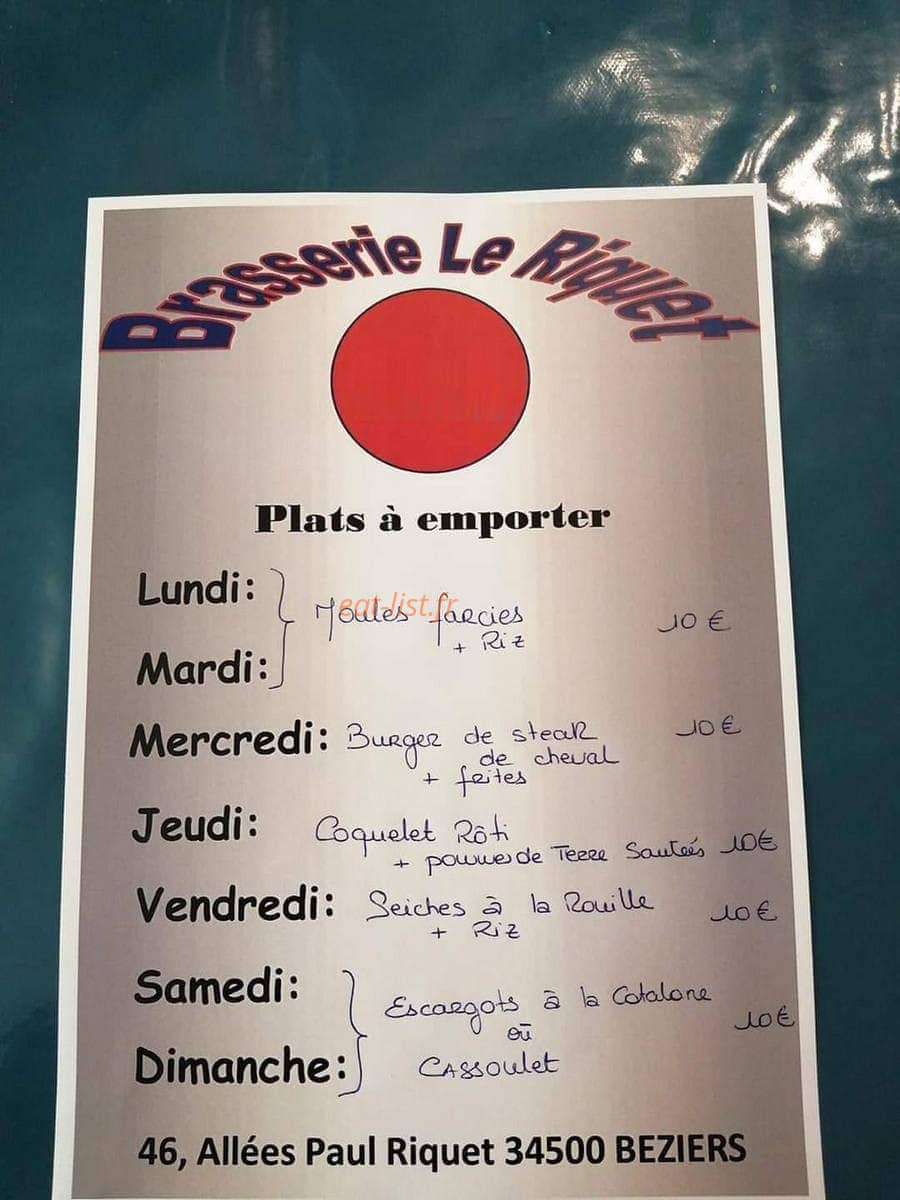 Brasserie Le Riquet
Plats à emporter
Lundi:
eat-list.fr
Moules farcies 10 €
+ Riz
Mardi:
Mercredi: Burger de steak 10 €
de cheval
+ frites
Jeudi: Coquelet Rôti
+ pommes de Terre Sauteés 10€
Vendredi: Seiches à la Rouille 10 €
+ Riz
Samedi:
Escargots à la Catalane
10€
ou
Dimanche: CASSoulet
46, Allées Paul Riquet 34500 BEZIERS